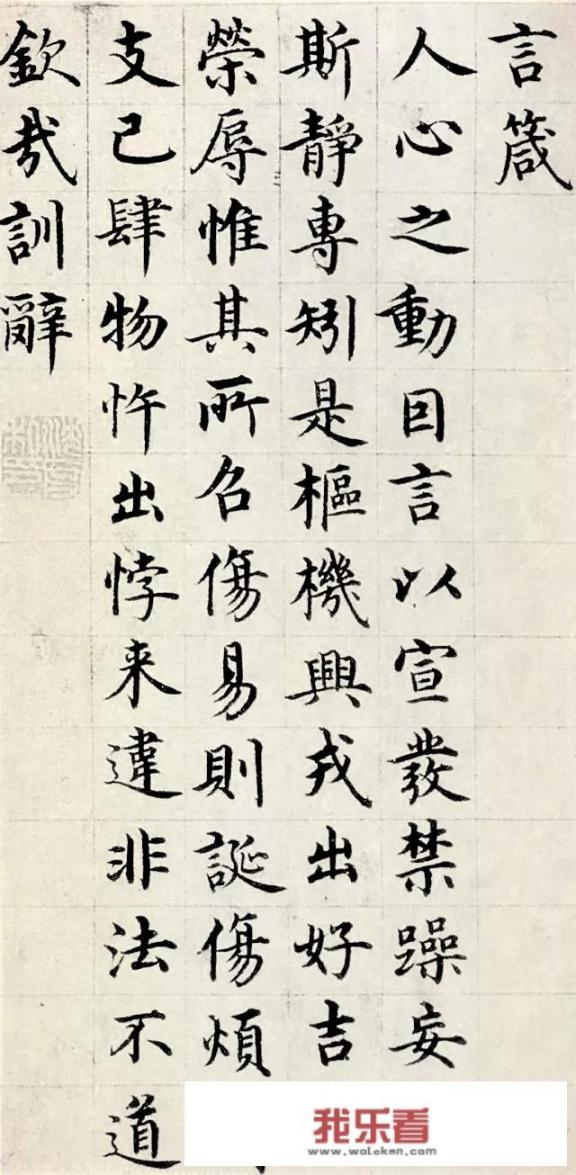 言箴
人心之動因言以宣發禁躁妄
斯靜專矧是樞機興戎出好吉
榮辱惟其所召傷易則誕傷煩
支己肆物忤出悖来違非法不道
欽哉訓辭
我乐看
www.woleken.com